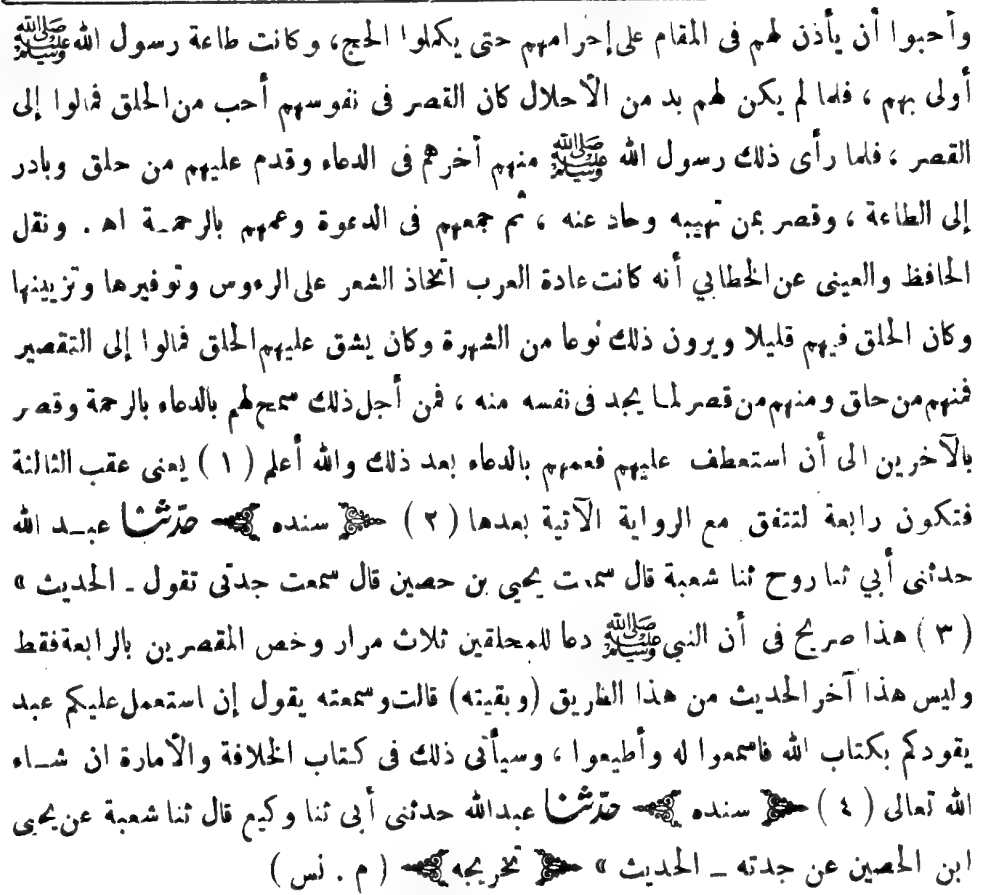 وأحبوا أن يأذن لهم فى المقام على إحرامهم حتى يكملوا الحج، وكانت طاعة رسول الله ﷺ
أولى بهم ، فلما لم يكن لهم بد من الأحلال كان القصر فى نفوسهم أحب من الحلق فمالوا إلى
القصر ، فلما رأى ذلك رسول الله ﷺ منهم أخرهم فى الدعاء وقدم عليهم من حلق وبادر
إلى الطاعة ، وقصر بمن تهيبه وحاد عنه ، ثم جمعهم فى الدعوة وعمهم بالرحمـة اهـ . ونقل
الحافظ والعينى عن الخطابي أنه كانت عادة العرب اتخاذ الشعر على الرءوس وتوفيرها وتزيينها
وكان الحلق فيهم قليلا ويرون ذلك نوعا من الشهرة وكان يشق عليهم الحلق فمالوا إلى التقصير
فمنهم من حلق ومنهم من قصر لما يجد فى نفسه منه ، فمن أجل ذلك سمح لهم بالدعاء بالرحمة وقصر
بالآخرين الى أن استعطف عليهم فعمهم بالدعاء بعد ذلك والله أعلم ( ١ ) يعنى عقب الثالثة
فتكون رابعة لتتفق مع الرواية الآتية بعدها ( ٢ ) ﴿ سنده ﴾ حدّثنا عبـد الله
حدثنى أبي ثنا روح ثنا شعبة قال سمعت يحيى بن حصين قال سمعت جدتى تقول ـ الحديث »
( ٣ ) هذا صريح فى أن النبى ﷺ دعا للمحلقين ثلاث مرار وخص المقصرين بالرابعة فقط
وليس هذا آخر الحديث من هذا الطريق (وبقيته) قالت وسمعته يقول إن استعمل عليكم عبد
يقودكم بكتاب الله فاسمعوا له وأطيعوا ، وسيأتى ذلك فى كتاب الخلافة والأمارة ان شـاء
الله تعالى ( ٤ ) ﴿ سنده ﴾ حدّثنا عبدالله حدثنى أبى ثنا وكيع قال ثنا شعبة عن يحيى
ابن الحصين عن جدته ـ الحديث » ﴿ تخريجه ﴾ ( م . نس )